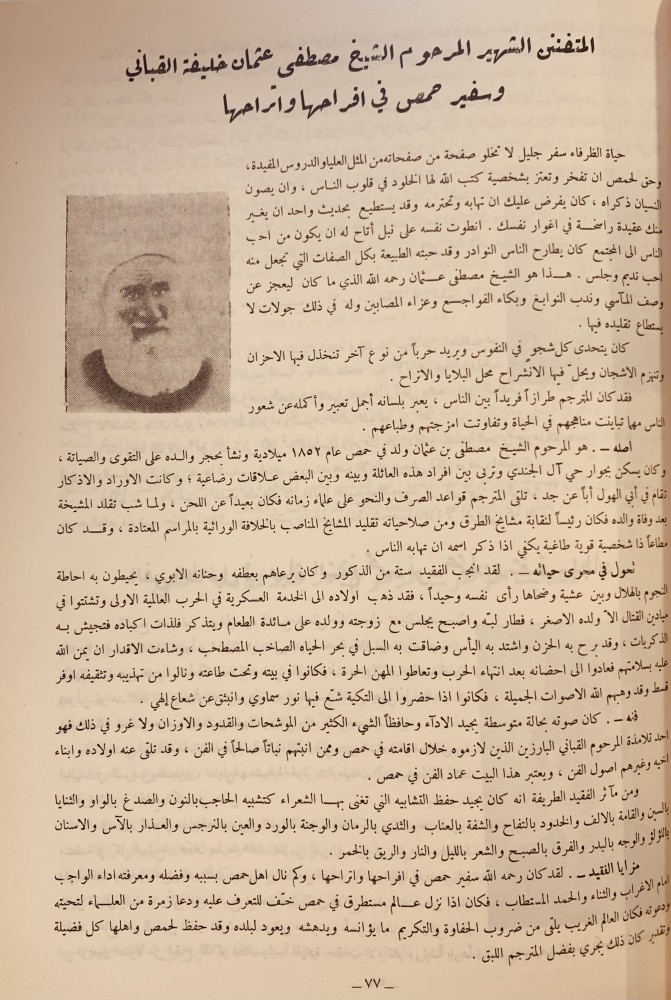 المتفنن الشهير المرحوم الشيخ مصطفى عثمان خليفة القباني
وسفير حمص في افراحها واتراحها
حياة الظرفاء سفر جليل لا تخلو صفحة من صفحاته من المثل العليا والدروس المفيدة ،
وحق لحمص ان تفخر وتعتز بشخصية كتب الله لها الخلود في قلوب الناس ، وان يصون
النسيان ذكراه ، كان يفرض عليك ان تهابه وتحترمه وقد يستطيع بحديث واحد ان يغير
منك عقيدة راسخة في اغوار نفسك . انطوت نفسه على نبل أتاح له ان يكون من احب
الناس الى المجتمع كان يطارح الناس النوادر وقد حبته الطبيعة بكل الصفات التي تجعل منه
احب نديم وجليس . هذا هو الشيخ مصطفى عثمان رحمه الله الذي ما كان ليعجز عن
وصف المآسي وندب النوابغ وبكاء الفواجع وعزاء المصابين وله في ذلك جولات لا
يستطاع تقليده فيها .
كان يتحدى كل شجو في النفوس ويريد حرباً من نوع آخر تنخذل فيها الاحزان
وتنهزم الاشجان ويحل فيها الانشراح محل البلايا والاتراح .
فقد كان المترجم طرازاً فريداً بين الناس ، يعبر بلسانه أجمل تعبير وأكمله عن شعور
الناس مهما تباينت مناهجهم في الحياة وتفاوتت امزجتهم وطباعهم .
اصله – . هو المرحوم الشيخ مصطفى بن عثمان ولد في حمص عام ١٨٥٢ ميلادية ونشأ بحجر والده على التقوى والصيانة ،
وكان يسكن بجوار حي آل الجندي وتربى بين افراد هذه العائلة وبينه وبين البعض علاقات رضاعية ؛ وكانت الاوراد والاذكار
تقام في أبي الهول أباً عن جد ، تلقى المترجم قواعد الصرف والنحو على علماء زمانه فكان بعيداً عن اللحن ، ولما شب تقلد المشيخة
بعد وفاة والده فكان رئيساً لنقابة مشايخ الطرق ومن صلاحياته تقليد المشايخ المناصب بالخلافة الوراثية بالمراسم المعتادة ، وقد كان
مطاعاً ذا شخصية قوية طاغية يكفي اذا ذكر اسمه ان تهابه الناس .
تحول في مجرى حياته – . لقد انجب الفقيد ستة من الذكور وكان يرعاهم بعطفه وحنانه الابوي ، يحيطون به احاطة
النجوم بالهلال وبين عشية وضحاها رأى نفسه وحيداً ، فقد ذهب اولاده الى الخدمة العسكرية في الحرب العالمية الاولى وتشتتوا في
ميادين القتال الا ولده الاصغر ، فطار لبّه واصبح يجلس مع زوجته وولده على مائدة الطعام ويتذكر فلذات اكباده فتجيش به
الذكريات ، وقد برح به الحزن واشتد به اليأس وضاقت به السبل في بحر الحياه الصاخب المصطحب ، وشاءت الاقدار ان يمن الله
عليه بسلامتهم فعادوا الى احضانه بعد انتهاء الحرب وتعاطوا المهن الحرة ، فكانوا في بيته وتحت طاعته ونالوا من تهذيبه وتثقيفه اوفر
قسط وقد وهبهم الله الاصوات الجميلة ، فكانوا اذا حضروا الى التكية شع فيها نور سماوي وانبثق عن شعاع إلهي .
فنه – . كان صوته بحالة متوسطة يجيد الاداء وحافظاً الشيء الكثير من الموشحات والقدود والاوزان ولا غرو في ذلك فهو
احد تلامذة المرحوم القباني البارزين الذين لازموه خلال اقامته في حمص وممن انبتهم نباتاً صالحاً في الفن ، وقد تلقى عنه اولاده وابناء
اخيه وغيرهم اصول الفن ، ويعتبر هذا البيت عماد الفن في حمص .
ومن مآثر الفقيد الطريفة انه كان يجيد حفظ التشابيه التي تغنى بها الشعراء كتشبيه الحاجب بالنون والصدغ بالواو والثنايا
بالسين والقامة بالالف والخدود بالتفاح والشفة بالعناب والثدي بالرمان والوجنة بالورد والعين بالنرجس والعذار بالآس والاسنان
باللؤلؤ والوجه بالبدر والفرق بالصبح والشعر بالليل والنار والريق بالخمر .
مزايا الفقيد – . لقد كان رحمه الله سفير حمص في افراحها واتراحها ، وكم نال اهل حمص بسببه وفضله ومعرفته اداء الواجب
امام الاغراب والثناء والحمد المستطاب ، فكان اذا نزل عالم مستطرق في حمص خف للتعرف عليه ودعا زمرة من العلماء لتحيته
ودعوته فكان العالم الغريب يلقى من ضروب الحفاوة والتكريم ما يؤانسه ويدهشه ويعود لبلده وقد حفظ لحمص واهلها كل فضيلة
وتقدير كان ذلك يجري بفضل المترجم اللبق .
– ٧٧ –